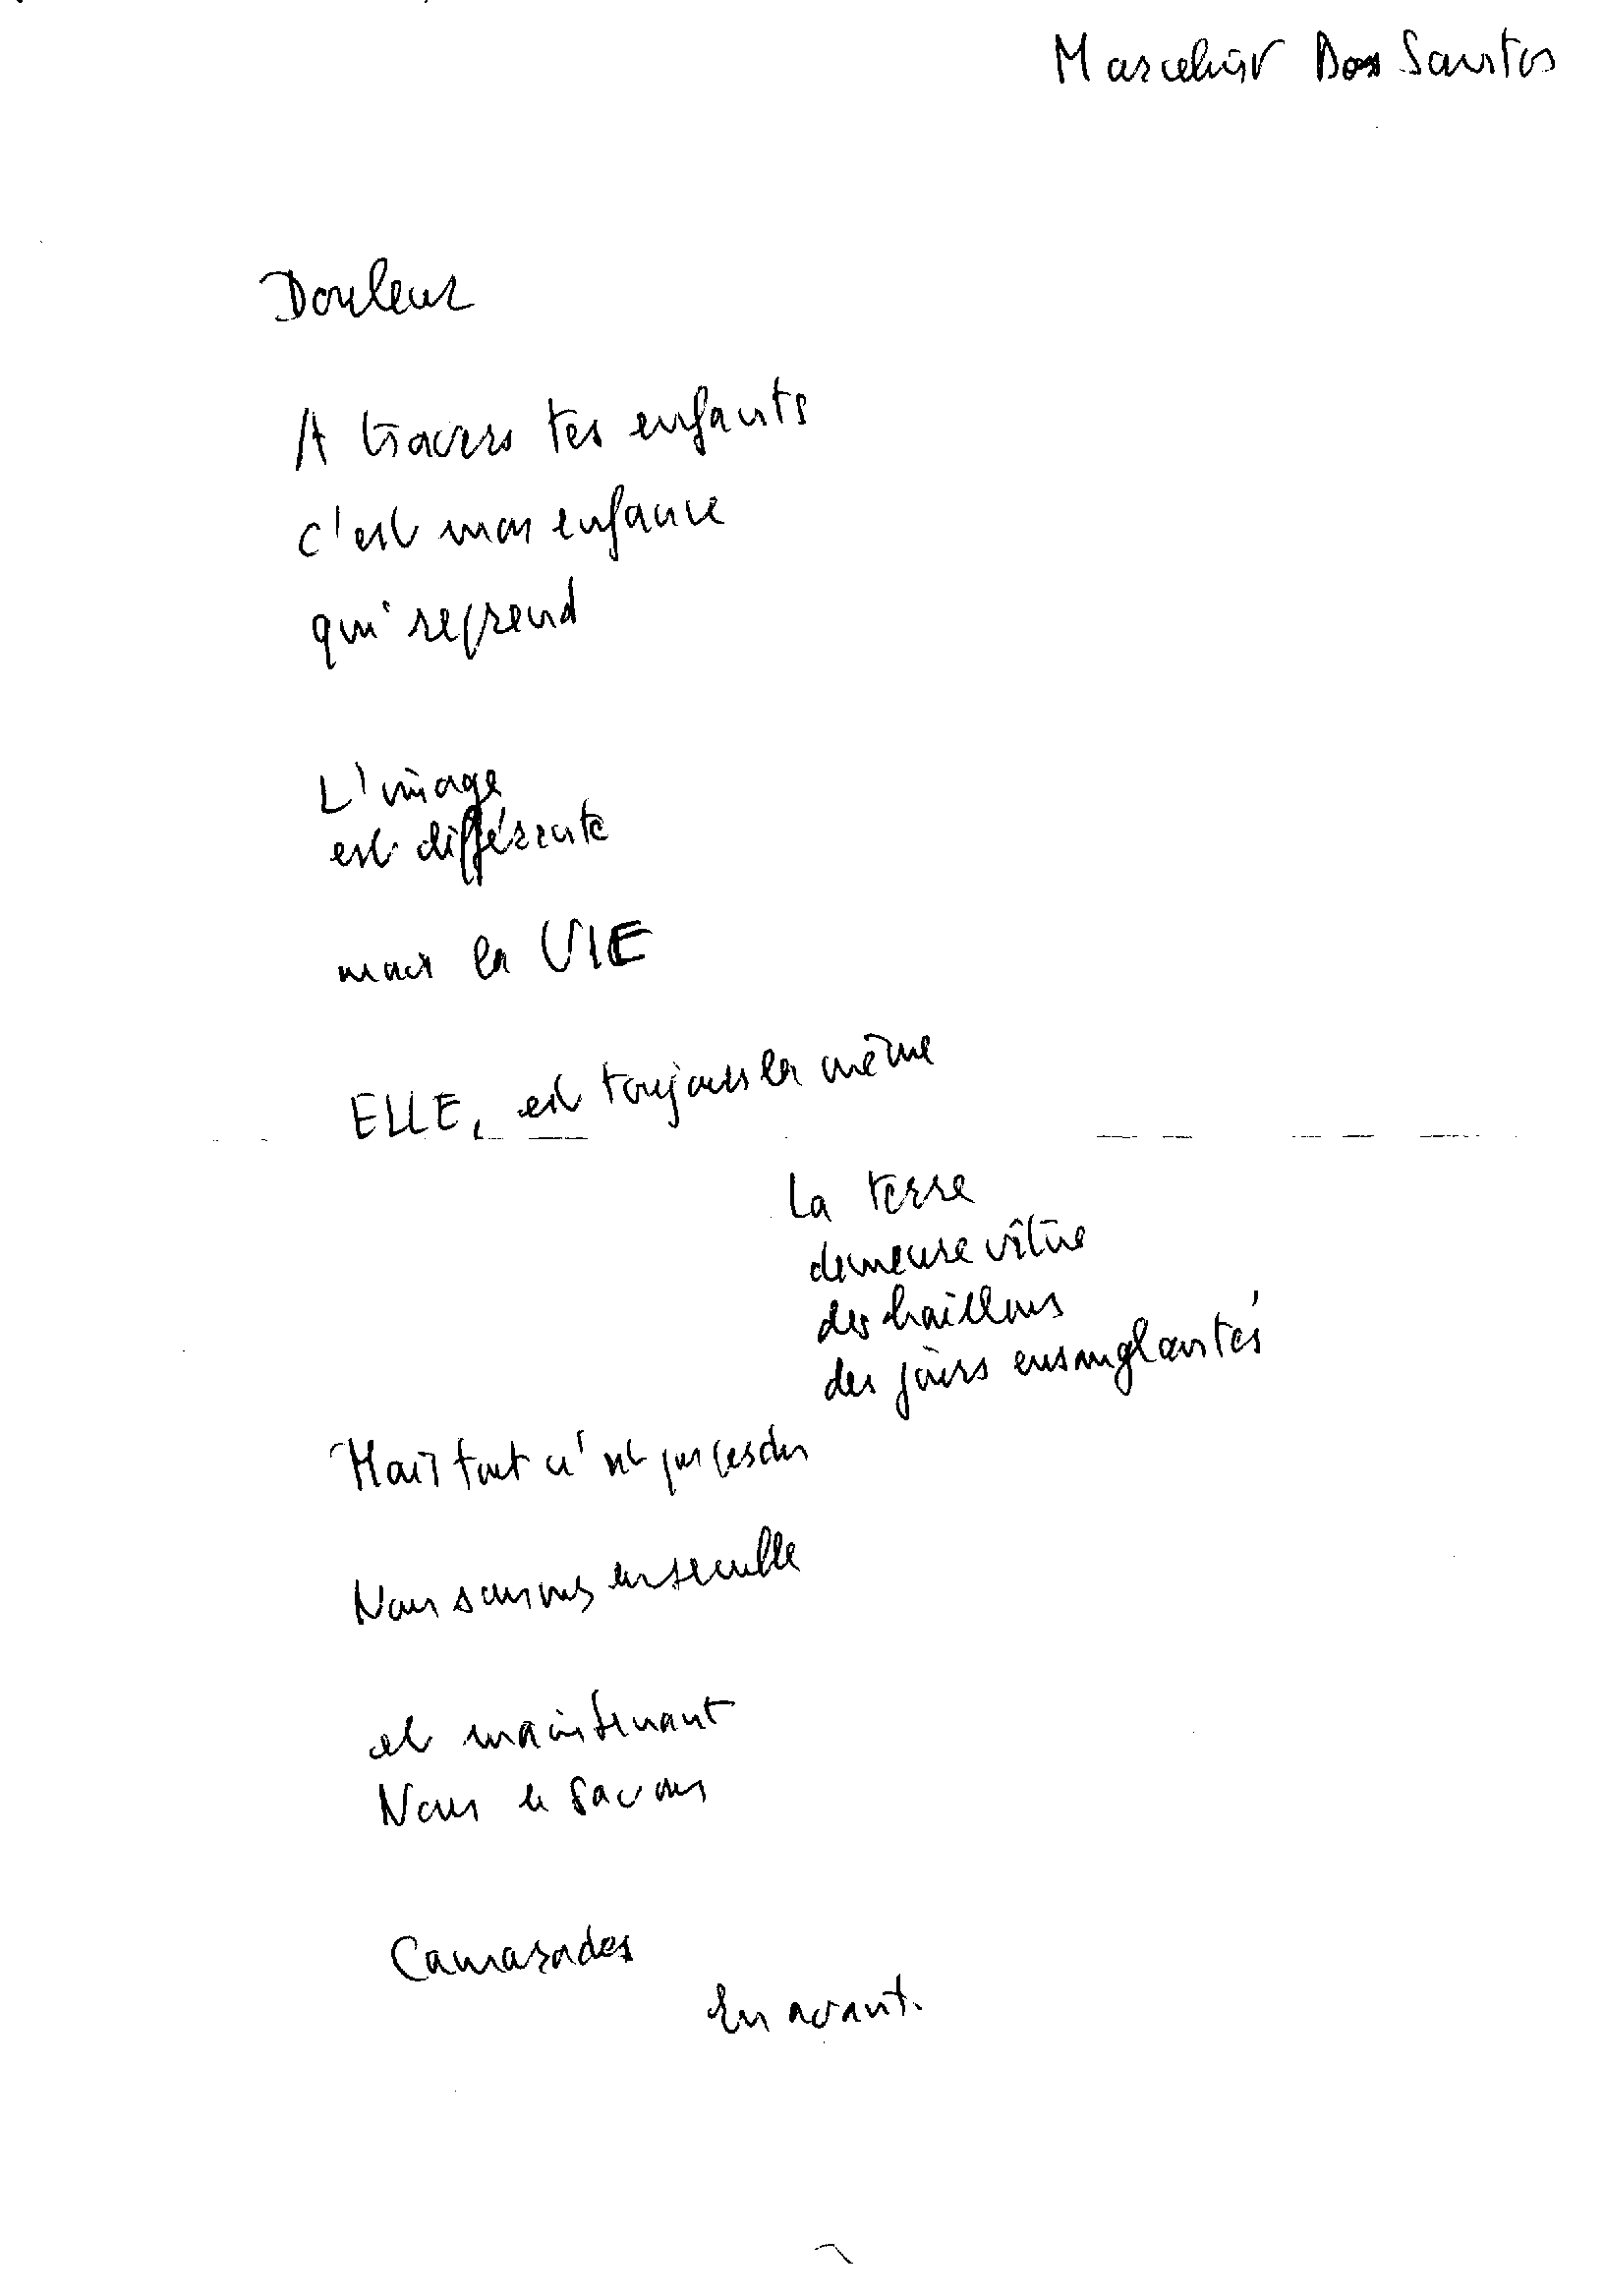 Marcelin Dos Santos
Douleur
A travers tes enfants
c'est mon enfance
qui reprend
L'image
est différente
mais la VIE
ELLE, est toujours la même
La terre
demeure vêtue
des haillons
des jours ensanglantés
Mais tout n'est pas perdu
Nous sommes ensemble
et maintenant
Nous le savons
Camarades
En avant.